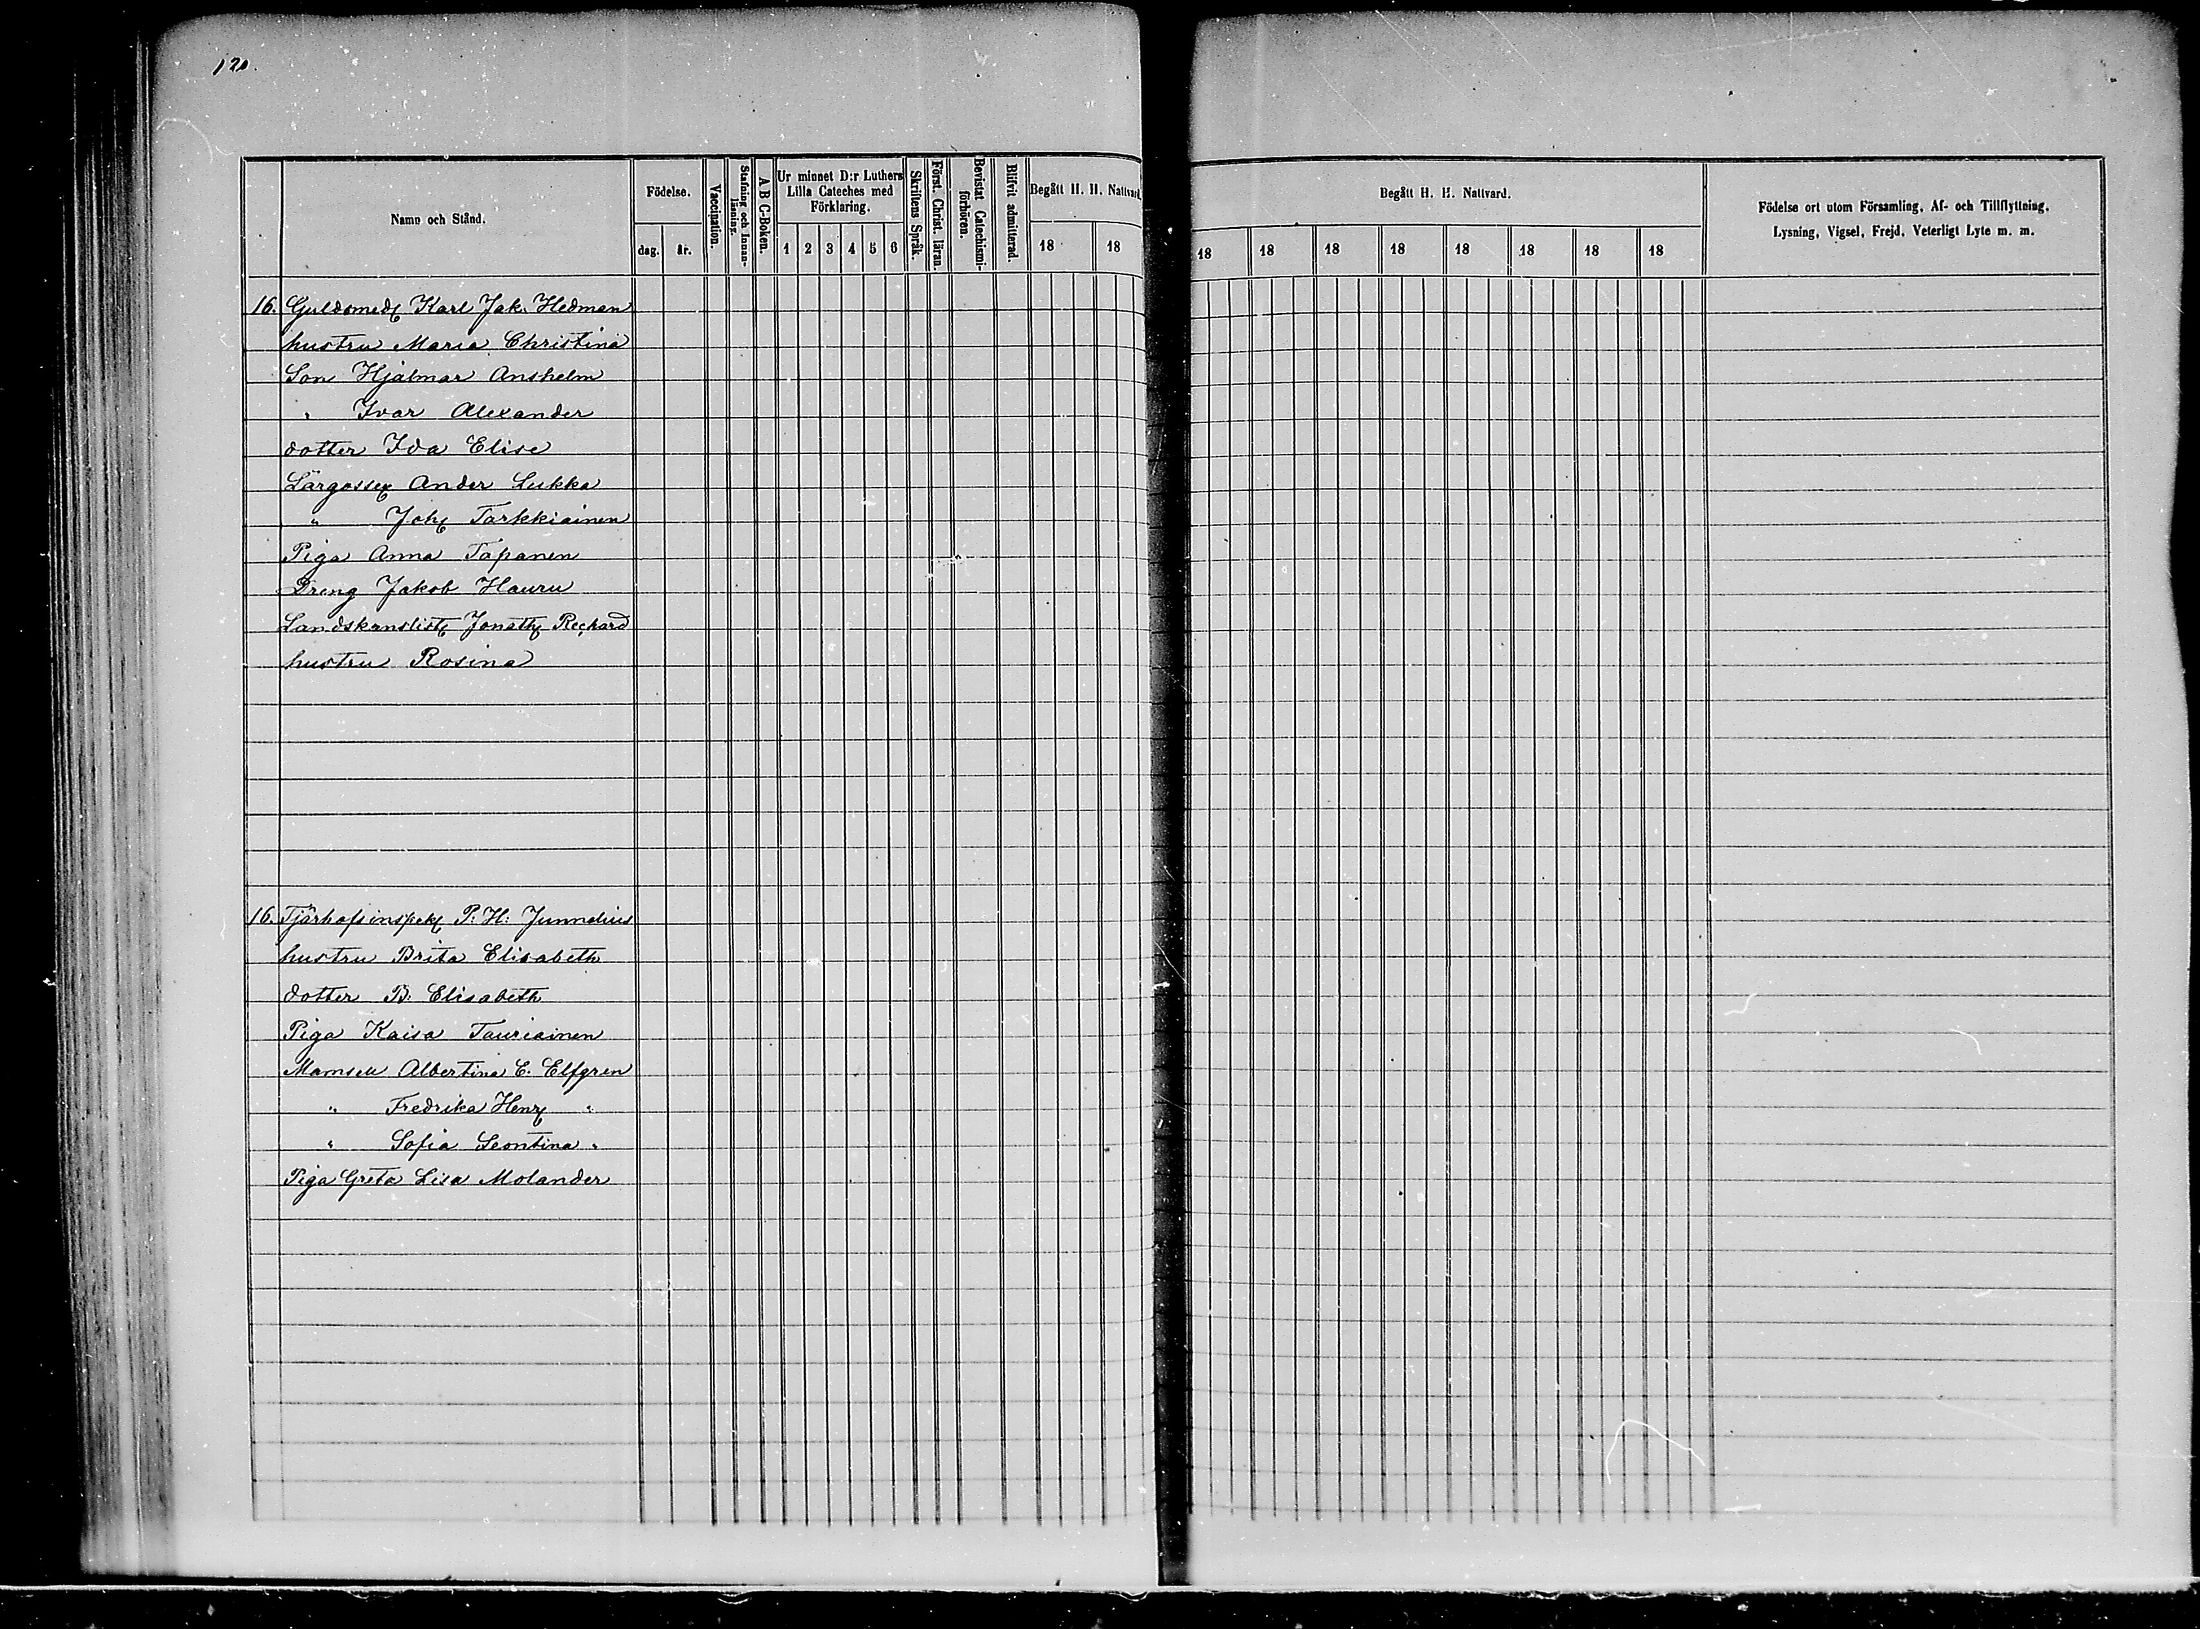 120.
Namn och Stånd.
Födelse.
dag.
år.
Vaccination.
Stafning och Innanläsning.
A B C-Boken.
Ur minnet D:r Luthers
Lilla Cateches med
Förklaring.
1 2 3 4 5 6
Skriftens Språk.
Först. Christ. läran.
Bevistat Catechismi-
förhören.
Blifvit admitterad.
Begått H. H. Nattvard.
18 18
Begått H. H. Nattvard.
18 18 18 18 18 18 18 18
Födelse ort utom Församling, Af- och Tillflyttning,
Lysning, Vigsel, Frejd, Veterligt Lyte m. m.
16. Guldsmed Karl Jak. Hedman
hustru Maria Christina
Son Hjalmar Anshelm
" Ivar Alexander
dotter Ida Elise
Lärgosse Ander Leikka
" Joh Tarkkiainen
Piga Anna Tapanen
Dreng Jakob Hauru
Landskanslist Jonath Rechard
hustru Rosina
16. Tjärhofsinspek P: H: Junnelius
hustru Brita Elisabeth
dotter B: Elisabeth
Piga Kaisa Tauriainen
Mamsell Albertina C. Elfgren
" Fredrika Henr "
" Sofia Leontina "
Piga Greta Lisa Molander